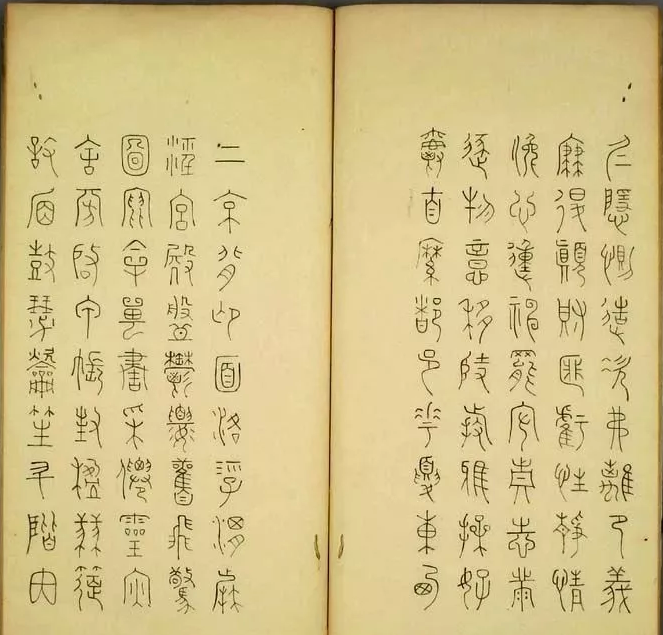 仁隱惻造次弗離節義
廉退顛沛匪虧性靜情
逸心動神疲守真志滿
逐物意移堅持雅操好
爵自縻都邑華夏東西
二京背邙面洛浮渭據
涇宮殿盤鬱樓觀飛驚
圖寫禽獸畫采仙靈丙
舍傍啟甲帳對楹肆筵
設席鼓瑟吹笙升階內